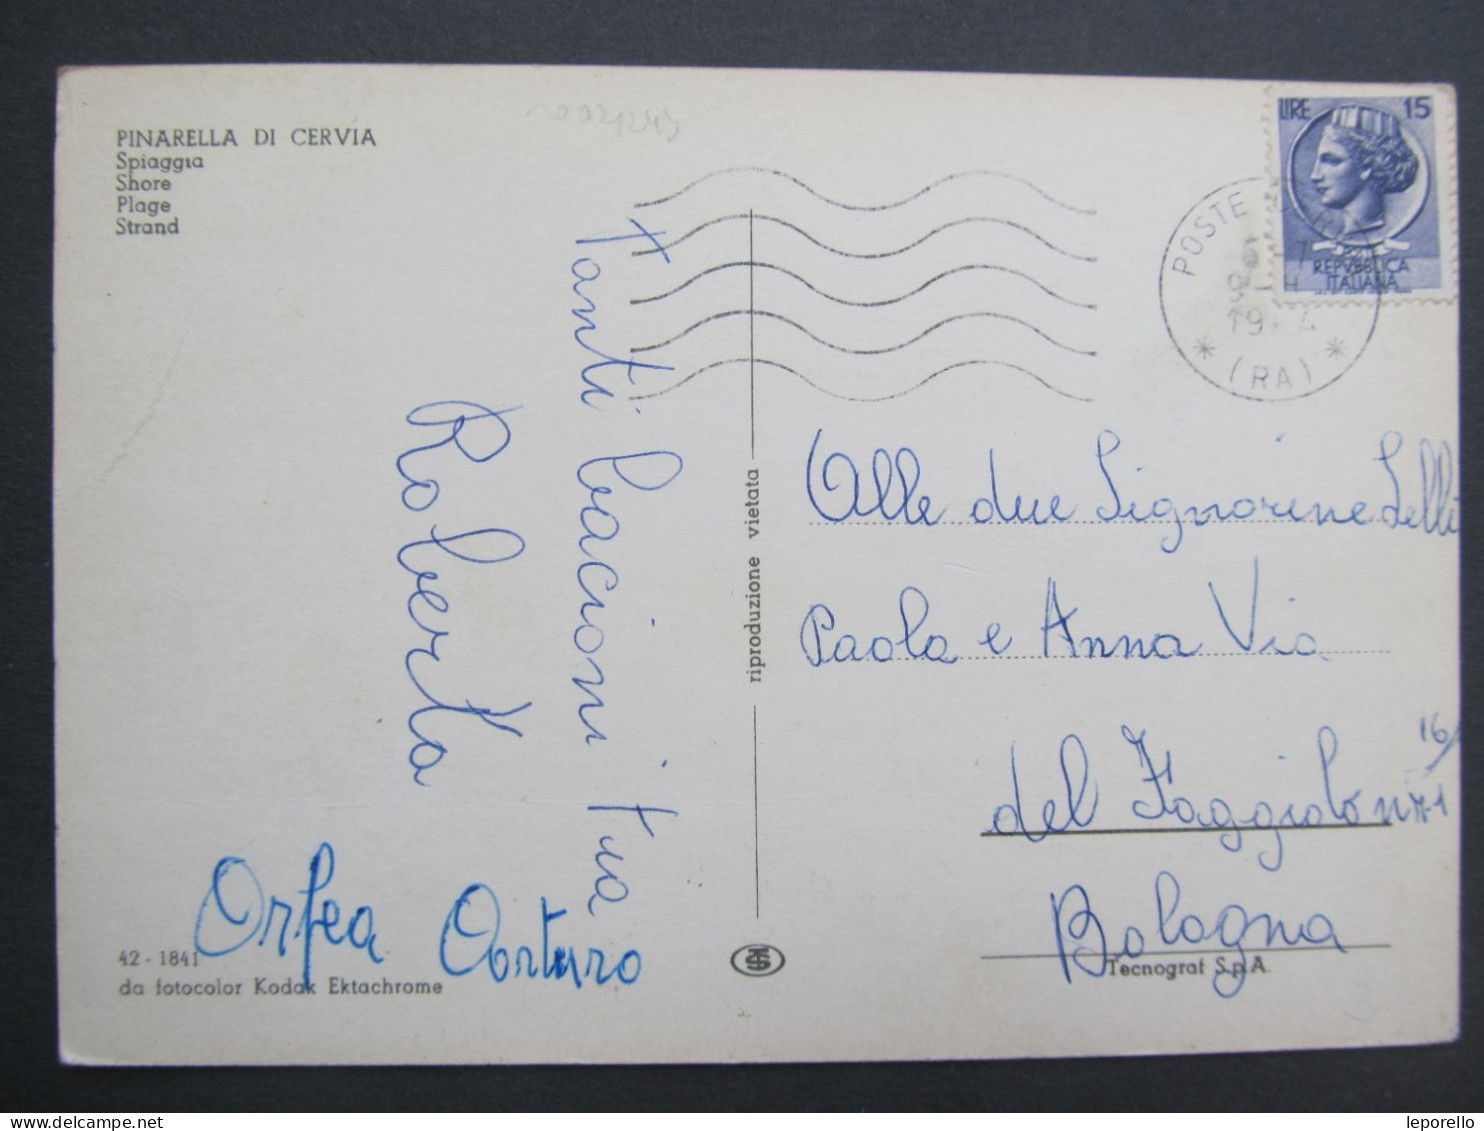 PINARELLA DI CERVIA
Spiaggia
Shore
Plage
Strand
Tanti bacioni tua
Roberta
Orfea Arturo
42 - 1841
da fotocolor Kodak Ektachrome
riproduzione vietata
LIRE 15
REPVBBLICA
ITALIANA
POSTE
(RA)
Alle due Signorine Lelli
Paola e Anna Via
del Faggiolo nr. 1
16/
Bologna
Tecnograf S.p.A.
leporello